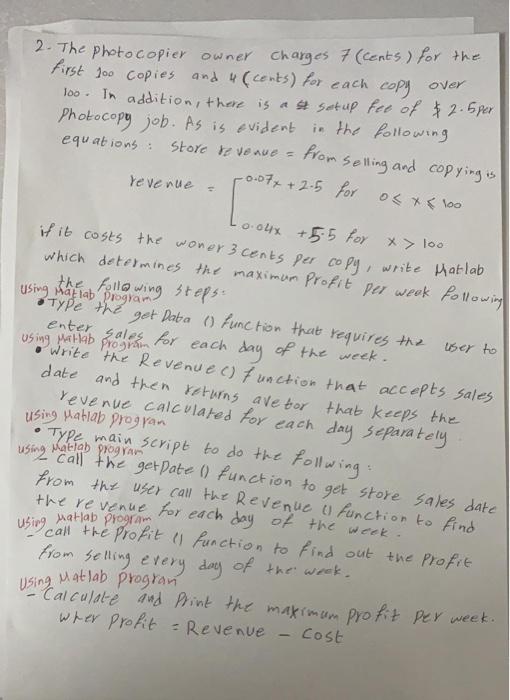 2- The photocopier owner charges 7 (cents) for the
first 100 copies and 4 (cents) for each copy over
100. In addition, there is a setup fee of $ 2.5 per
Photocopy job. As is evident in the following
equations: Store revenue = from selling and copying is
revenue = 0.07x + 2.5 for 0 ≤ x ≤ 100
0.04x + 5.5 for x > 100
if it costs the woner 3 cents per copy, write Matlab
which determines the maximum Profit per week following
the following steps:
Using Matlab program
• Type the get Data () function that requires the user to
enter sales for each day of the week.
Using Matlab program
• Write the Revenue () function that accepts sales
date and then returns avetor that keeps the
revenue calculated for each day separately.
Using Matlab progran
• Type main script to do the follwing:
using Matlab program
- call the getDate () function to get store sales date
from the user call the Revenue () function to find
the revenue for each day of the week.
Using Matlab program
- call the Profit () function to find out the Profit
from selling every day of the week.
Using Matlab progran
- Calculate and Print the maximum profit per week.
wher Profit = Revenue - Cost